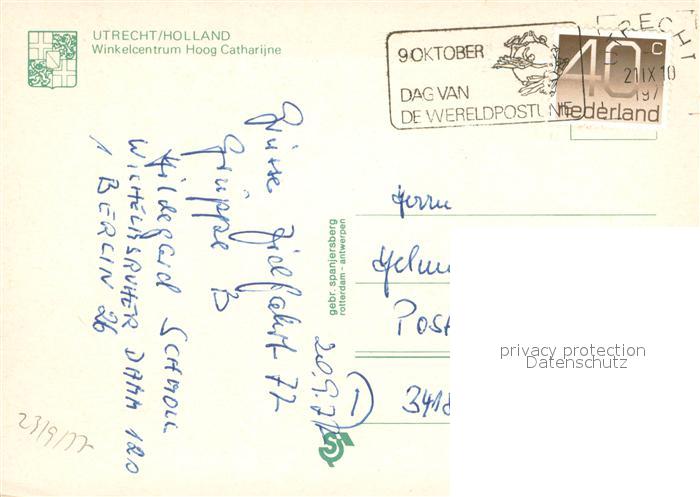 UTRECHT/HOLLAND
Winkelcentrum Hoog Catharijne
9 OKTOBER
DAG VAN
DE WERELDPOSTUNIE
UTRECHT
21 IX 10
197
40 c
nederland
Grüsse Zielfahrt 77
Gruppe B
Hildegard
WILHELMSRUHER DAMM 120
1 BERLIN 26
20.9.77
gebr. spanjersberg
rotterdam - antwerpen
Herrn
Helmu
Post
1) 3418
privacy protection
Datenschutz
23/9/77